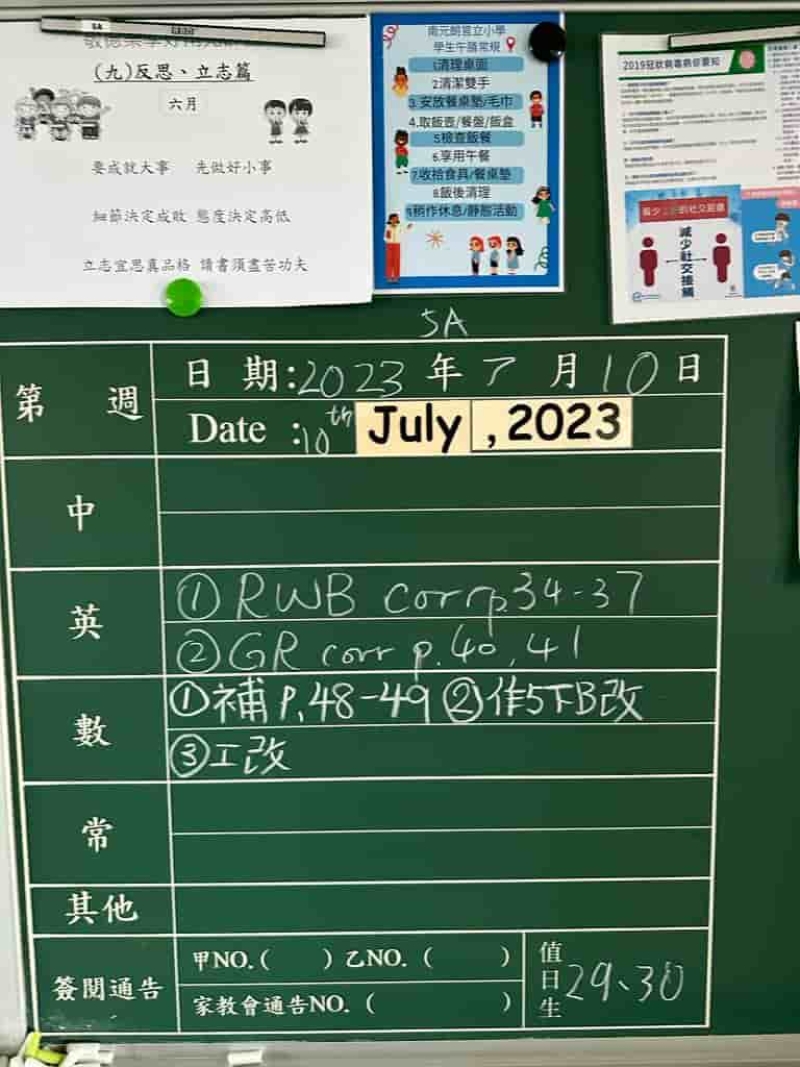 (九)反思、立志篇
六月
要成就大事 先做好小事
細節決定成敗 態度決定高低
立志宜思真品格 讀書須盡苦功夫
南元朗官立小學
學生午膳常規
1清理桌面
2.清潔雙手
3.安放餐桌墊/毛巾
4.取飯壺/餐盤/飯盒
5檢查飯餐
6.享用午餐
7.收拾食具/餐桌墊
8.飯後清理
9稍作休息/靜態活動
2019冠狀病毒病你要知
減少社交接觸
5A
第 週
日 期:2023 年 7 月 10 日
Date :10th July , 2023
中
英
①RWB corr p.34-37
②GR corr p.40,41
數
①補P.48-49 ②作5下B改
③工改
常
其他
簽閱通告
甲NO.( ) 乙NO. ( )
家教會通告NO. ( )
值日生
29、30